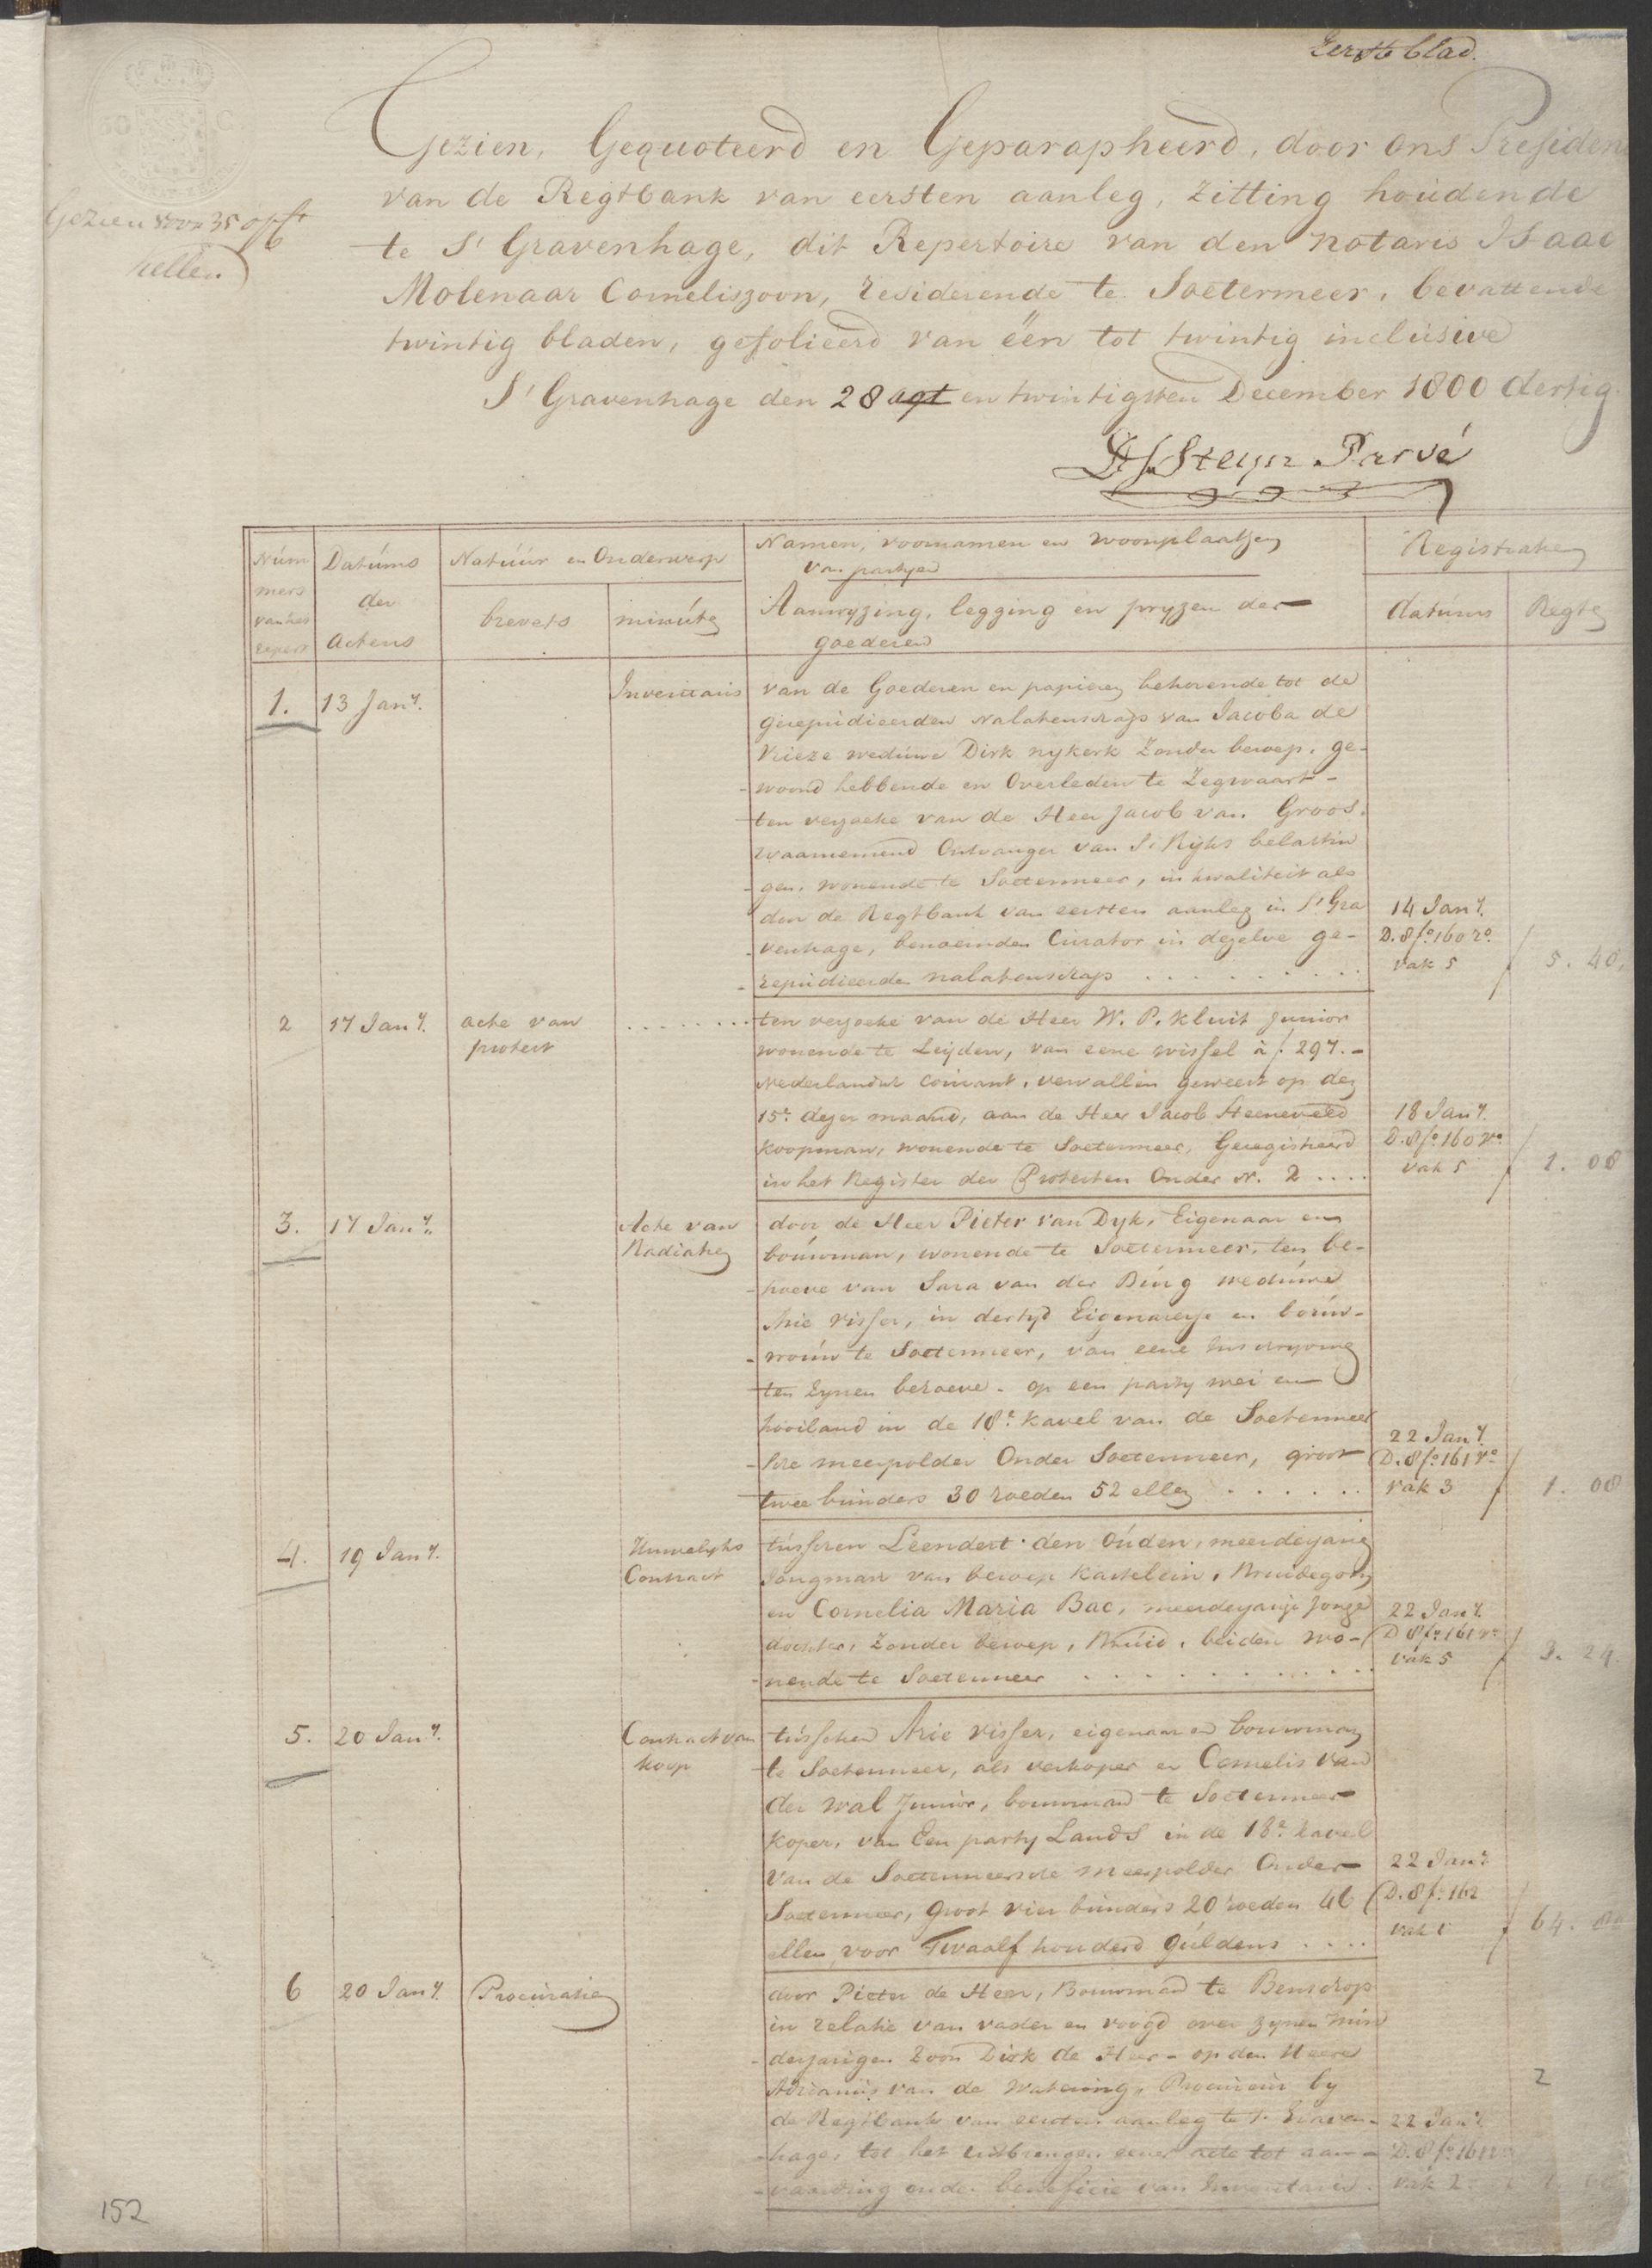 Eerste blad.
50 C
Gezien voor 35 opst
Gezien, Gequoteerd en Geparapheerd, door ons Presiden
van de Regtbank van eersten aanleg, zitting houdende
te S' Gravenhage, dit Repertoire van den notaris Isaac
Molenaar Corneliszoon, resideerende te Soetermeer, bevattende
twintig bladen, gefolieerd van één tot twintig inclusive
S' Gravenhage den 28 agt en twintigsten December 1800 dertig.
Steyn Parvé
Núm
mers
van het
Repert
Datúms
der
Actens
Natúúr en Onderwerp
brevets
minúte
Namen, voornamen en woonplaatsen
van partyen
Aanwyzing, legging en pryzen der
goederen
Registratie
datúms
Regte
1.
13 Jany.
Inventaris
van de Goederen en papieren behorende tot de
gerepudieerden Nalatenschap van Jacoba de
Vrieze weduwe Dirk nykerk Zonder beroep, ge-
woond hebbende en Overleden te Zegwaart -
ten verzoeke van de Heer Jacob van Groos.
waarnemend Ontvanger van S Ryks belastin
gen, wonende te Soetermeer, in kwaliteit als
door de Regtbank van eersten aanleg in S' Gra
venhage, benoemden Curator in dezelve ge-
repudieerde nalatenschap . . . . . . . . .
14 Jany.
D. 8 fo. 160 ro.
vak 5
5. 40
2
17 Jany.
acte van
protest
ten verzoeke van de Heer W. P. Kluit Junior
wonende te Leyden, van eene wissel à f. 297.-
Nederlandsch Courant, vervallen geweest op den
15e dezer maand, aan de Heer Jacob Heeneveld
Koopman, wonende te Soetermeer, Geregistreerd
in het Register der Protesten Onder N. 2 ....
18 Jany.
D. 8 fo. 160 vo.
vak 5
1. 08
3.
17 Jany.
Acte van
Radiatie
door de Heer Pieter van Dyk, Eigenaar en
bouwman, wonende te Soetermeer, ten be-
hoeve van Sara van der Búrg wedúwe
Arie Visser, in dertyd Eigenaresse en boúw-
vroúw te Soetermeer, van eene Inschryving
ten Zynen behoeve - op een party wei en
hooiland in de 18e Kavel van de Soetermeer
sche meerpolder Onder Soetermeer, groot
twee bunders 30 roeden 52 ellen . . . . . .
22 Jany.
D. 8 fo. 161 ro.
vak 3
1. 08
4.
19 Jany.
Huwelyks
Contract
tússchen Leendert den Oúden, meerderjarig
Jongman van beroep Kastelein, Bruidegom
en Cornelia Maria Bac, meerderjarige Jonge
dochter, Zonder beroep, Brúid, beiden wo-
nende te Soetermeer . . . . . . . . . . .
22 Jany.
D 8 fo. 161 vo.
vak 5
3. 24.
5.
20 Jany.
Contract van
koop
tússchen Arie Visser, eigenaar en bouwman
te Soetermeer, als verkoper en Cornelis van
der Wal Junior, bouwman te Soetermeer
Koper, van Een party Lands in de 18e kavel
van de Soetermeersche meerpolder Onder
Soetermeer, groot vier bunders 20 roeden 46
ellen voor Twaalf honderd Guldens ....
22 Jany.
D. 8 f. 162
vak 1
64.
6
20 Jany.
Procúratie
door Pieter de Heer, Bouwman te Benschop
in relatie van vader en voogd over zynen min
derjarigen Zoon Dirk de Heer - op den Heere
Adrianús van de Watering, Procureur by
de Regtbank van eersten aanleg te S Graven-
hage, tot het uitbrengen eener acte tot aan-
vaarding onder beneficie van Inventaris.
22 Jany.
D. 8 fo. 161
vak 2
2
152